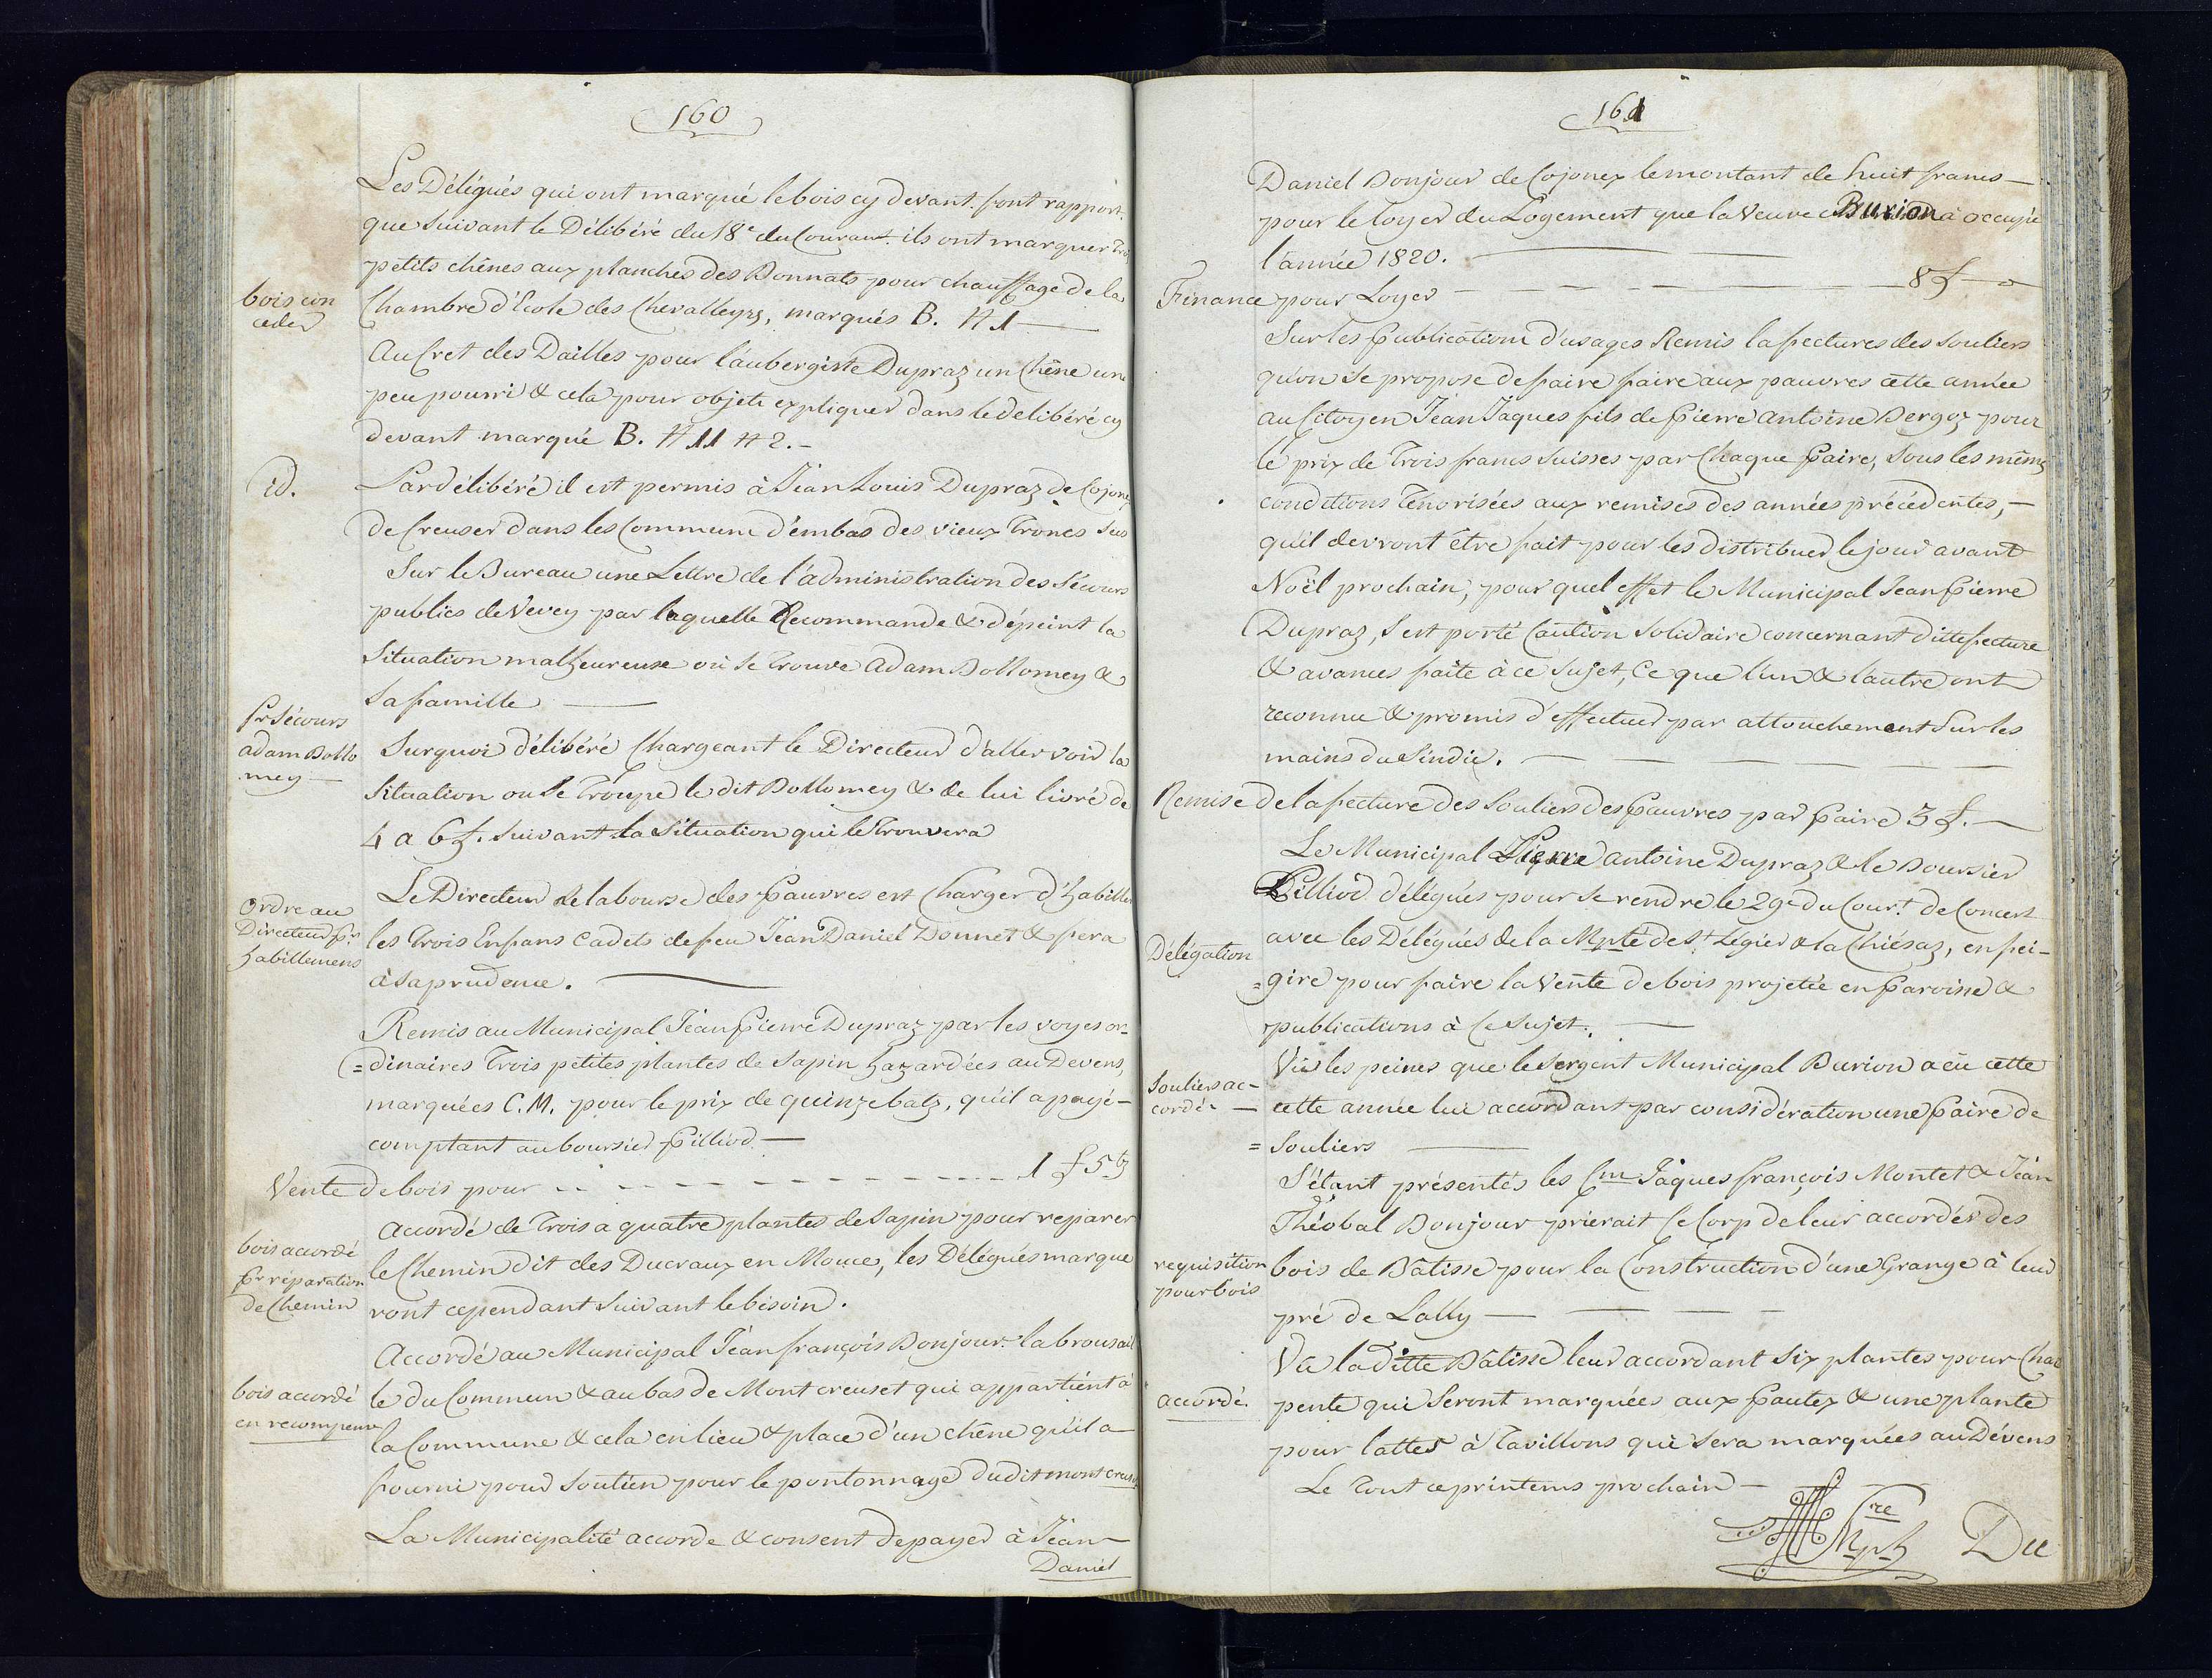 160
Les Délégués qui ont marqué le bois cy devant. font rapport.
que suivant le Délibéré du 18e du Courant. ils ont marquer trois
petits chênes aux planches des Bonnats pour chauffage de la
bois con
ceder
Chambre d'Ecole des Chevalleyrs, marqués B. # 1 —
Au Cret des Dailles pour l'aubergiste Dupraz un Chêne une
peu pourri & cela pour objets expliquer dans le délibéré cy
devant marqué B. # 11 # 2. -
id.
Par délibéré il est permis à Jéan Louis Dupraz de Cojonex
de Creuser dans les Commun d'embas des vieux troncs secs
Sur le Bureau une Lettre de l'administration des Sécours
publics de Vevey par laquelle Recommande & dépeint la
Situation malheureuse où se trouve Adam Dollomey &
Sa famille —
pr Sécours
adam Dollo
mey —
Surquoi délibéré Chargeant le Directeur d'aller voir la
Situation ou se troupe le dit Dollomey & de lui livré de
4 a 6 f. suivant la Situation qui le trouvera
Ordre au
Directeur pr
habillemens
Le Directeur de la bourse des Pauvres est Charger d'habiller
les trois Enfans Cadets de feu Jéan Daniel Donnet & fera
à sa prudence. —
Remis au Municipal Jéan Pierre Dupraz par les voyes or-
= dinaires trois petites plantes de Sapin hazardées au Devens,
marquées C. M. pour le prix de quinze batz, qu'il a payé -
comptant au boursier Pilliod —
Vente de bois pour - - - - - - - - - - - 1 f 5 tz
bois accordé
pr réparation
de Chemin
Accordé de trois a quatre plantes de Sapin pour réparer
le Chemin dit des Ducraux en Mouce, les Délégués marque
ront cependant suivant le bésoin.
bois accordé
en recompense
Accordé au Municipal Jéan françois Bonjour la brousail
le du Commun & au bas de Mont creuset qui appartient à
la Commune & cela en lieu & place d'un chêne qu'il a
fourni pour Soutien pour le pontonnage dudit mont creuset
La Municipalité accorde & consent de payer à Jéan
Daniel
161
Daniel Bonjour de Cojonex le montant de huit francs —
pour le loyer du Logement que la Veuve Burion à occupé
l'année 1820. —
Finance pour Loyer — — — — 8 f —
Sur les Publications d'usages Remis la fectures des Souliers
qu'on se propose de faire faire aux pauvres cette année
au Citoyen Jéan Jaques fils de Pierre Antoine Dergoz pour
le prix de trois francs Suisses par Chaque Paire, Sous les mêmes
conditions ténorisées aux remises des années précédentes, -
qu'il devront être fait pour les distribuer le jour avant
Noël prochain, pour quel effet le Municipal Jean Pierre
Dupraz, s'est porté Caution Solidaire concernant ditte fecture
& avances faite à ce sujet, Ce que l'un & l'autre ont
reconnu & promis d'effectuer par attouchement Sur les
mains du Sindic. — — — — —
Remise de la fecture des Souliers des Pauvres par Paire 3 f. —
Le Municipal Pierre Antoine Dupraz & le Boursier
Pilliod délégués pour se rendre le 29e du Cour.t de Concert
Délégation
avec les Délégués de la Mpté de St Légier & la Chiésaz, en fei-
= gire pour faire la Vente de bois projetée en Paroisse &
publications à ce Sujet. —
Souliers ac-
cordés —
Vû les peines que le Sergent Municipal Burion a eu cette
cette année lui accordant par considération une Paire de
= Souliers —
S'étant présentés les Cm Jaques françois Montet & Jéan
Théobal Bonjour prierait Ce Corp de leur accordér des
requisition
pour bois
bois de Bâtisse pour la Construction d'une Grange à leur
pré de Lally — — — -
accordé.
Vû la ditte Bâtisse leur accordant Six plantes pour Char
pente qui Seront marquées aux Pautex & une plante
pour lattes à Tavillons qui sera marquées au Dévens
Le tout ce printems prochain —
Du